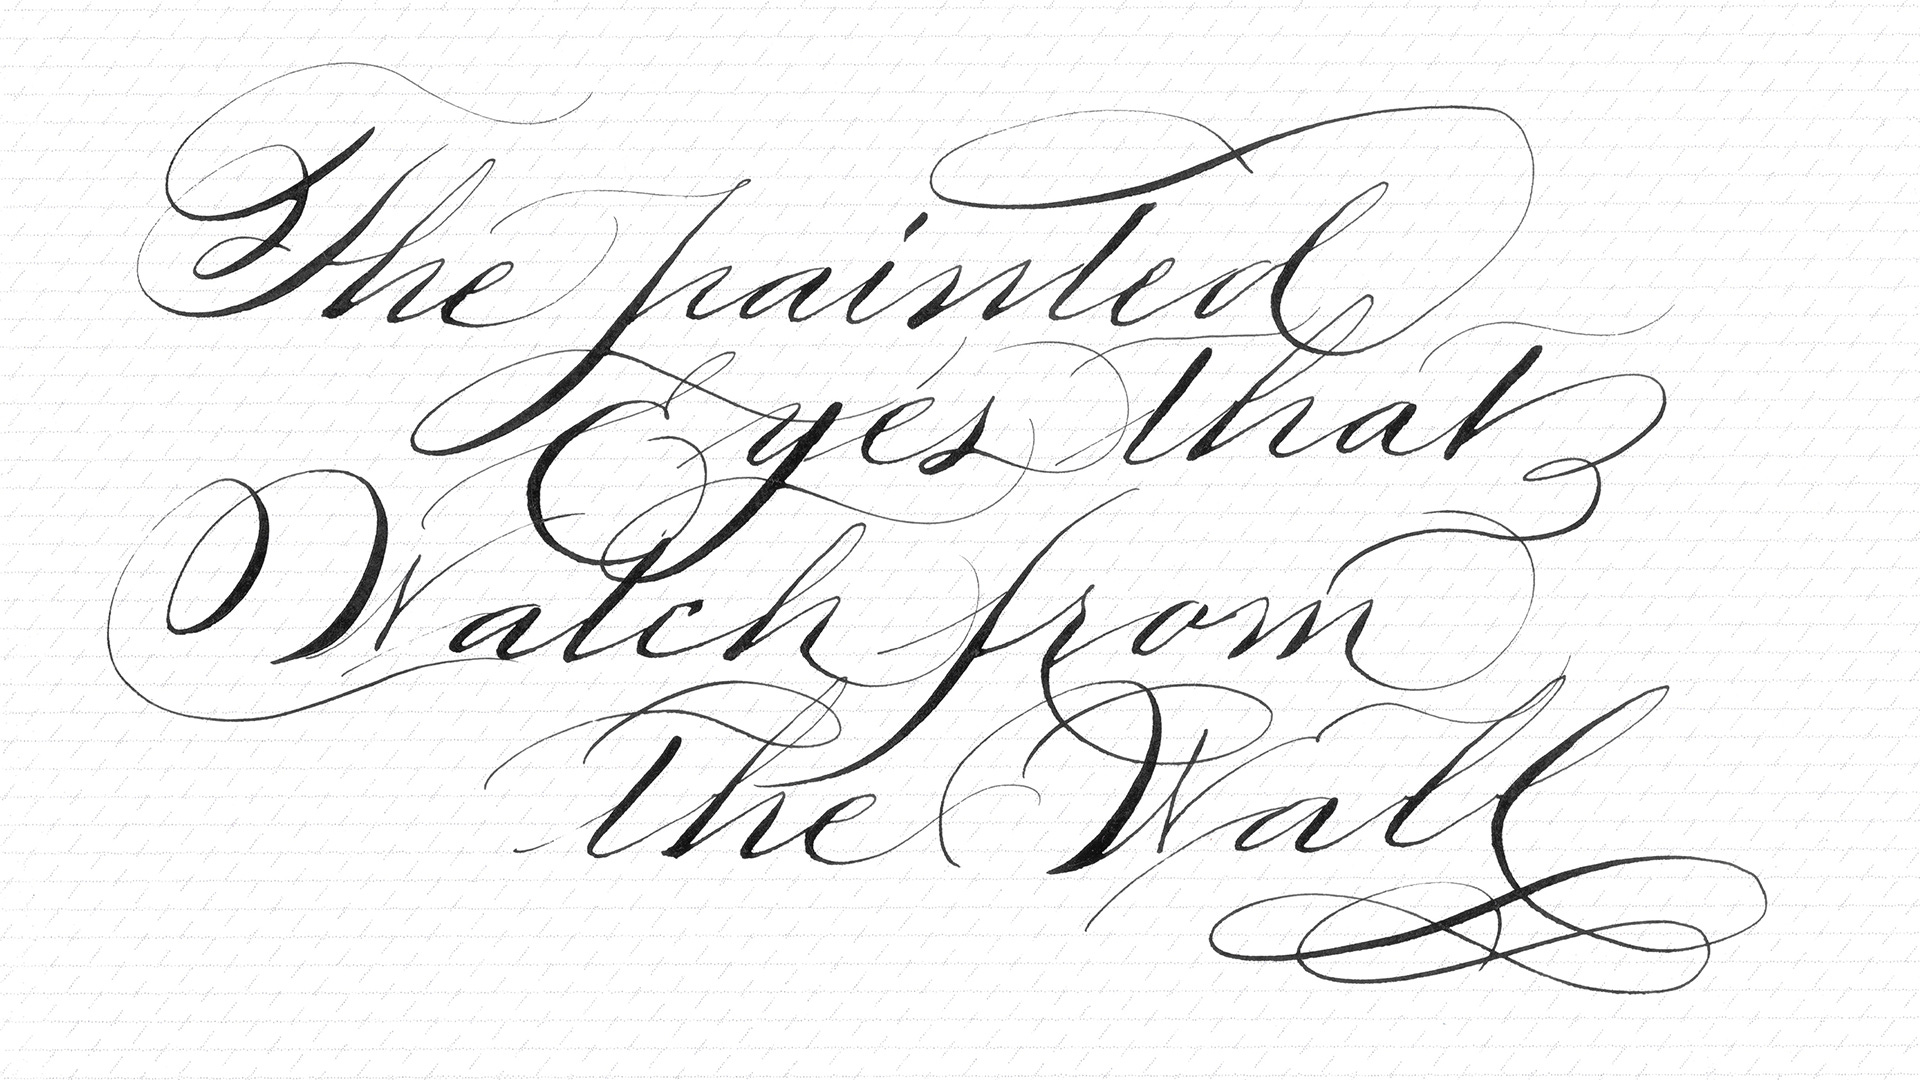 The painted
Eyes that
Watch from
The Wall